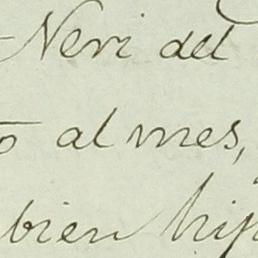 Neri del
al mes,
bien